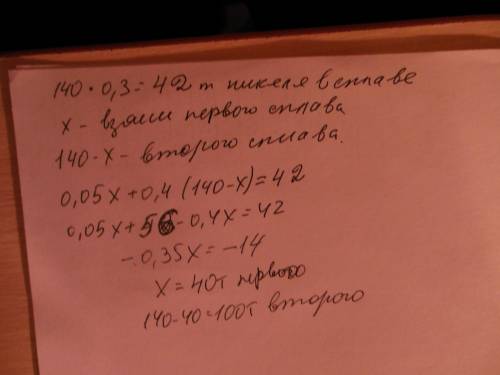 140 · 0,3 = 42 т никеля в сплаве
х - взяли первого сплава
140 - х - второго сплава.
0,05х + 0,4 (140-х) = 42
0,05х + 56 - 0,4х = 42
- 0,35х = -14
х = 40т первого
140-40=100т второго